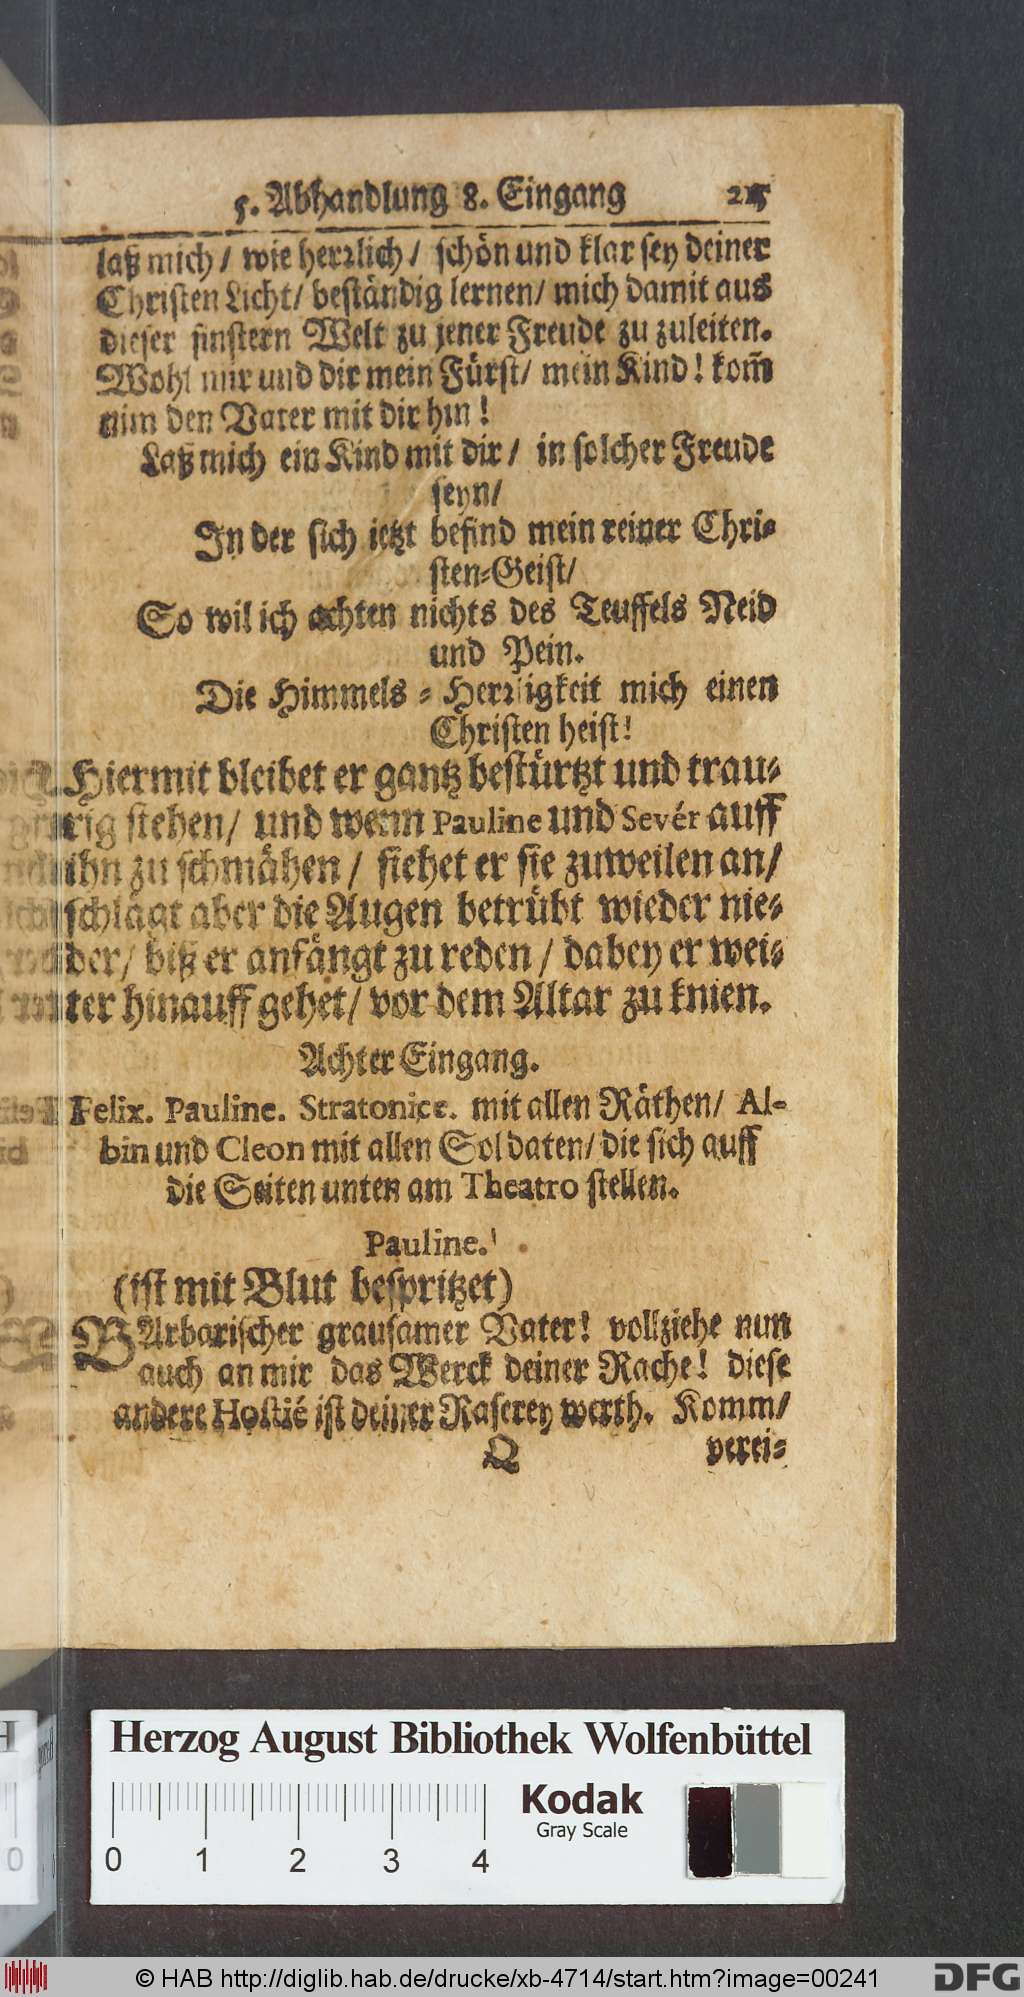 5. Abhandlung 8. Eingang 215
laß mich / wie herꝛlich / schön und klar sey deiner
Christen Licht / beständig lernen / mich damit aus
dieser finstern Welt zu jener Freude zu zuleiten.
Wohl mir und dir mein Fürst / mein Kind! kom̃
nim den Vater mit dir hin!
Laß mich ein Kind mit dir / in solcher Freude
seyn /
In der sich ietzt befind mein reiner Chri-
sten-Geist /
So wil ich achten nichts des Teuffels Neid
und Pein.
Die Himmels-Herꝛligkeit mich einen
Christen heist!
Hiermit bleibet er gantz bestürtzt und trau-
rig stehen / und wenn Pauline und Sevér auff
ihn zu schmähen / siehet er sie zuweilen an /
schlägt aber die Augen betrübt wieder nie-
der / biß er anfängt zu reden / dabey er wei-
ter hinauff gehet / vor dem Altar zu knien.
Achter Eingang.
Felix. Pauline. Stratonice. mit allen Räthen / Al-
bin und Cleon mit allen Soldaten / die sich auff
die Seiten unten am Theatro stellen.
Pauline.
(ist mit Blut bespritzet)
BArbarischer grausamer Vater! vollziehe nun
auch an mir das Werck deiner Rache! diese
andere Hostié ist deiner Raserey werth. Komm /
Q verei-
Herzog August Bibliothek Wolfenbüttel
Kodak
Gray Scale
0 1 2 3 4
© HAB http://diglib.hab.de/drucke/xb-4714/start.htm?image=00241
DFG